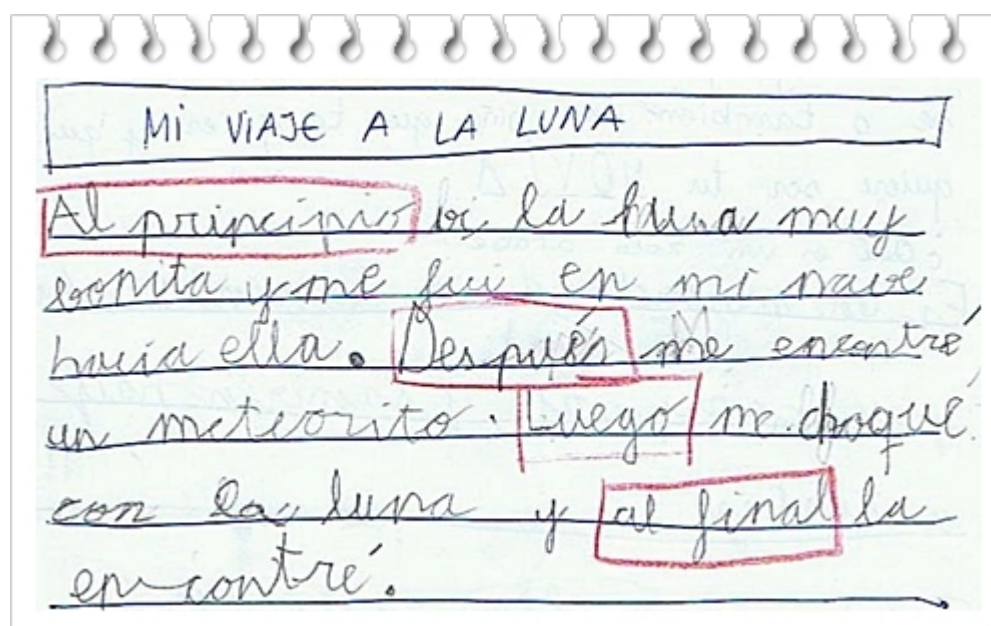 Mi VIAJE A LA LUNA
Al principio bi la luna muy
bonita y me fui en mi nave
hacia ella. Después me encontré
un meteorito. Luego me choqué
con la luna y al final la
encontré.